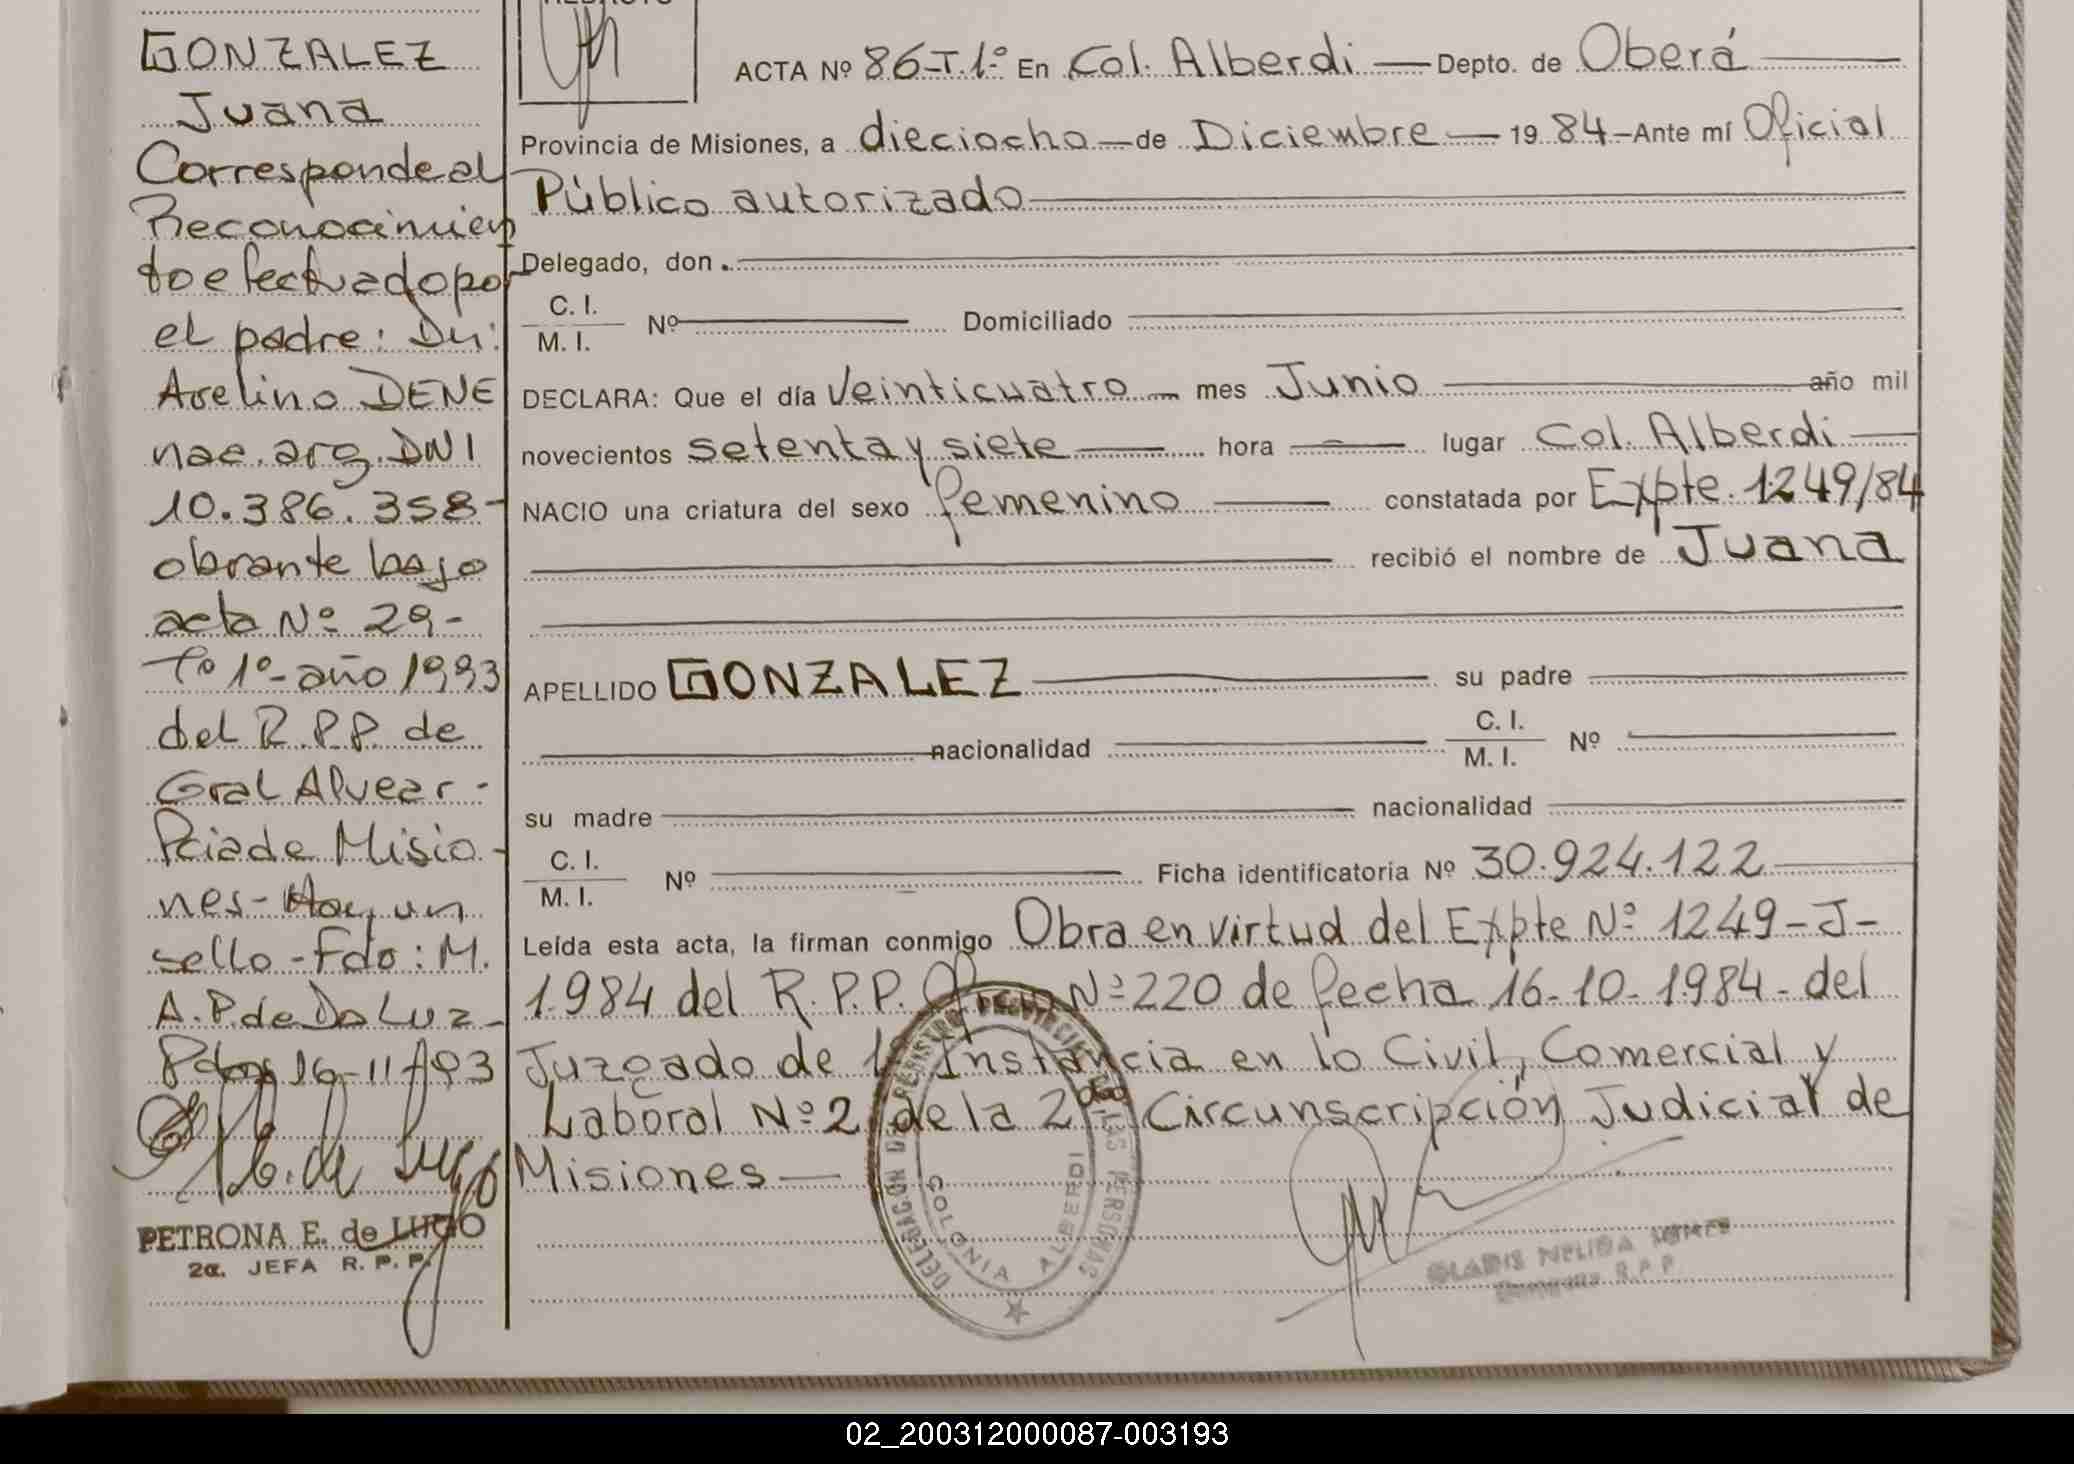 GONZALEZ
Juana
Corresponde al
Reconocimien
to efectuado por
el padre: Dn:
Avelino DENE
nac. arg. DNI
10.386.358-
obrante bajo
acta Nº 29-
Tº 1º- año 1993
del R.P.P. de
Gral Alvear-
Pcia de Misio-
nes- Hay un
sello - Fdo: M.
A.P. de Da Luz-
Pdas 16-11-993
PETRONA E. de LUGO
2a. JEFA R. P. P.
ACTA Nº 86-T.1º En Col. Alberdi — Depto. de Oberá
Provincia de Misiones, a dieciocho — de Diciembre — 19 84 - Ante mí Oficial
Público autorizado
Delegado, don
C. I.
M. I. Nº Domiciliado
DECLARA: Que el día Veinticuatro — mes Junio — año mil
novecientos setenta y siete — hora — lugar Col. Alberdi —
NACIO una criatura del sexo femenino — constatada por Expte. 1249/84
recibió el nombre de Juana
APELLIDO GONZALEZ — su padre
nacionalidad C. I.
M. I. Nº
su madre nacionalidad
C. I.
M. I. Nº Ficha identificatoria Nº 30.924.122
Leída esta acta, la firman conmigo Obra en virtud del Expte Nº 1249-J-
1984 del R.P.P. Nº 220 de fecha 16-10-1984- del
Juzgado de 1º Instancia en lo Civil, Comercial y
Laboral Nº 2 de la 2da Circunscripción Judicial de
Misiones —
DELEGACION DEL REGISTRO PROVINCIAL DE LAS PERSONAS
COLONIA ALBERDI
GLADIS NELIDA
R.P.P.
02_200312000087-003193